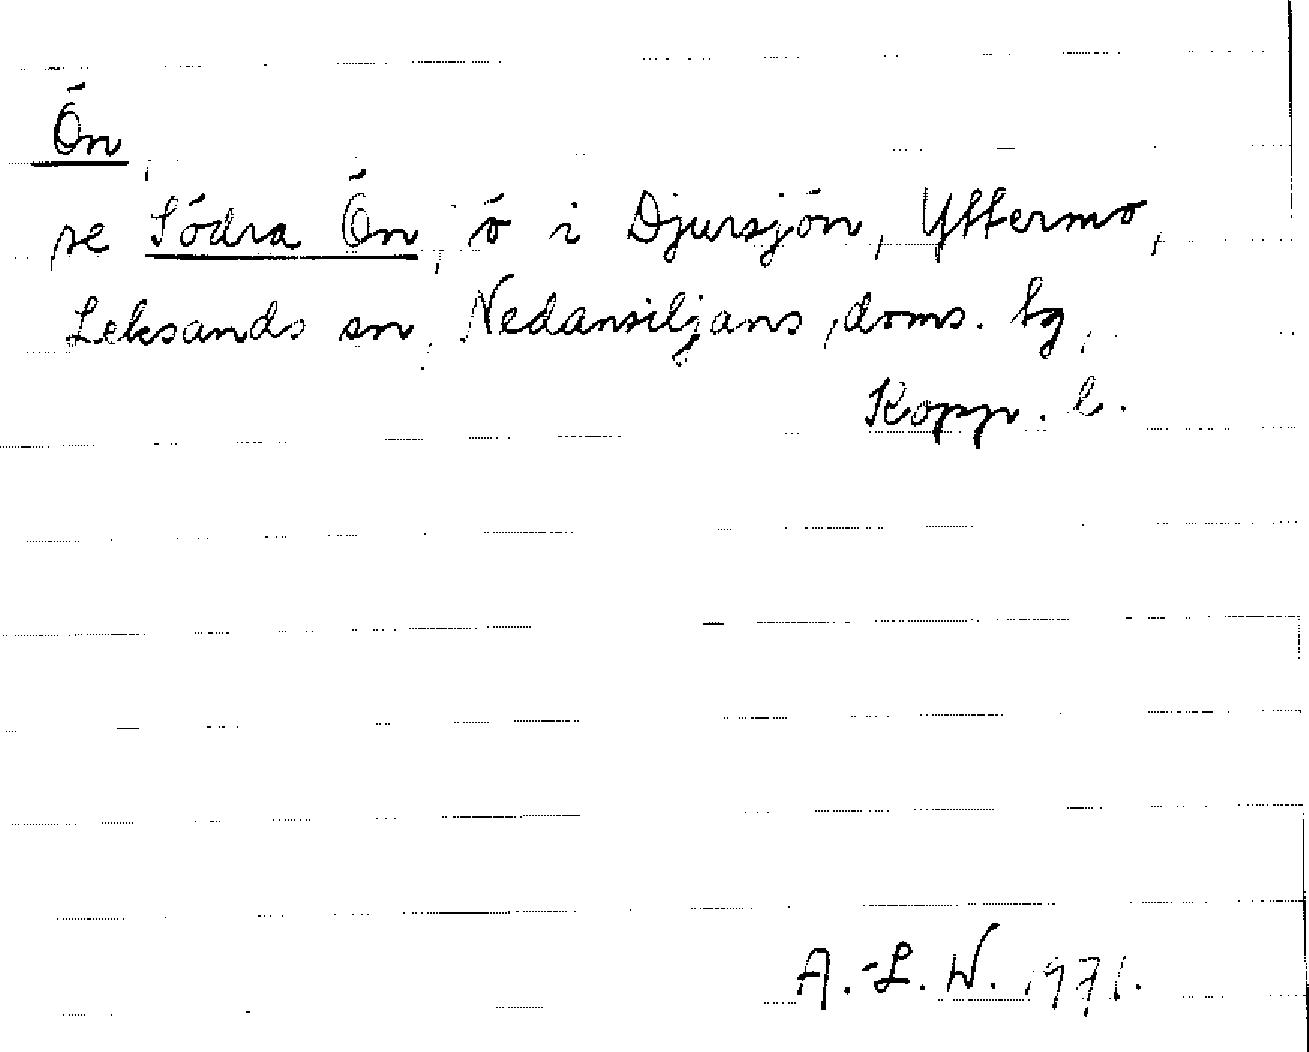 Ön,
se Södra Ön, ö i Djursjön, Yttermo,
Leksands sn, Nedansiljans doms. tg,
Kopp. l.
A.-L. W. 1971.